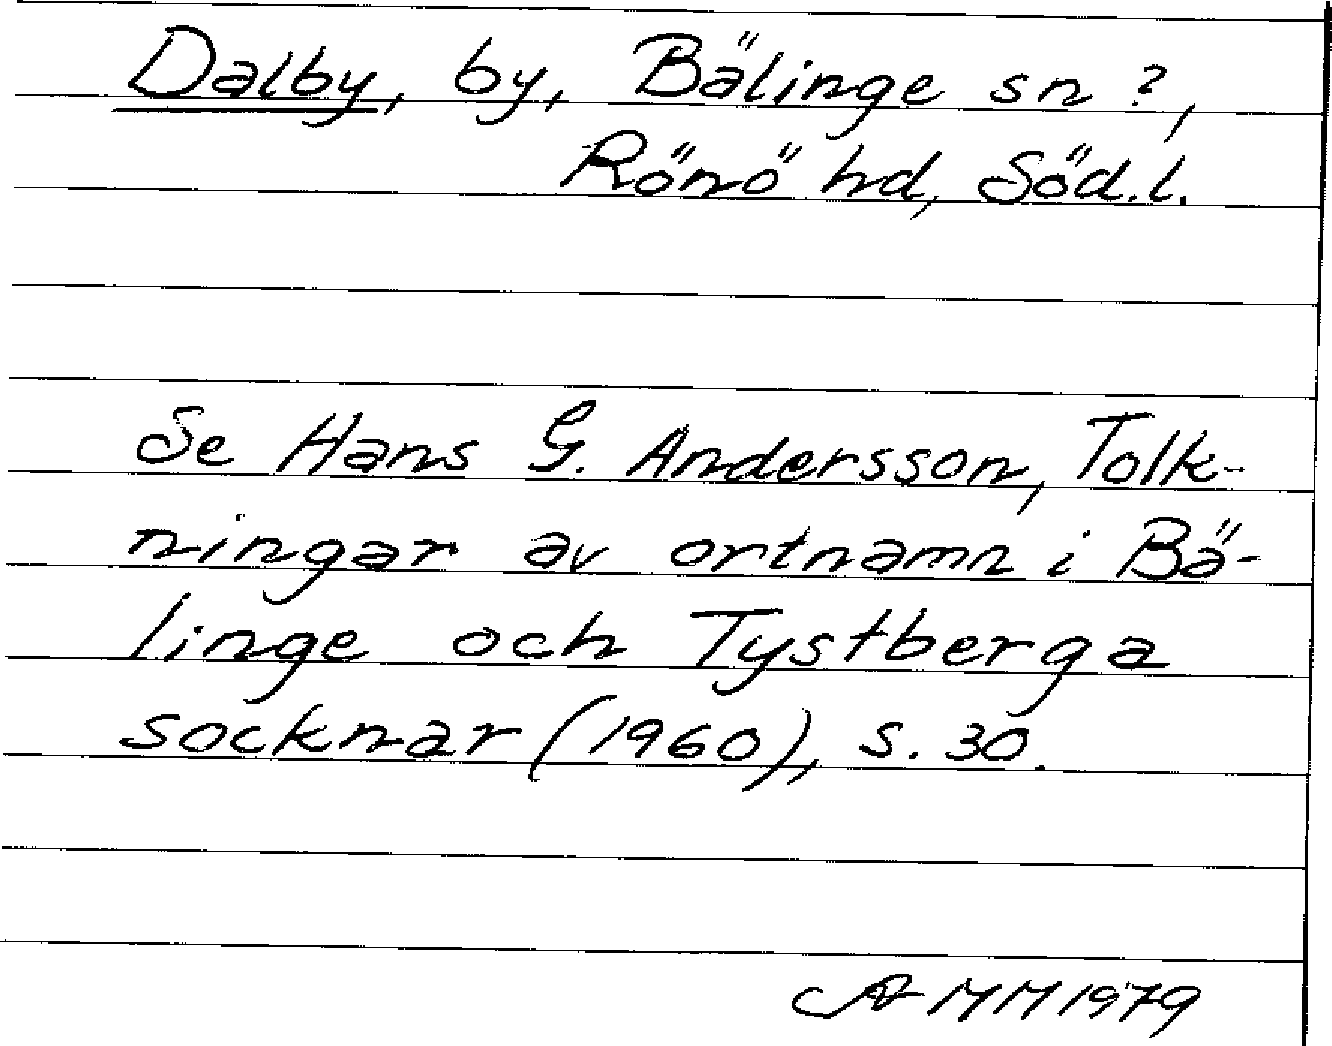 Dalby, by, Bälinge sn?,
Rönö hd, Söd.l.
Se Hans G. Andersson, Tolk-
ningar av ortnamn i Bä-
linge och Tystberga
socknar (1960), s. 30.
MM 1979